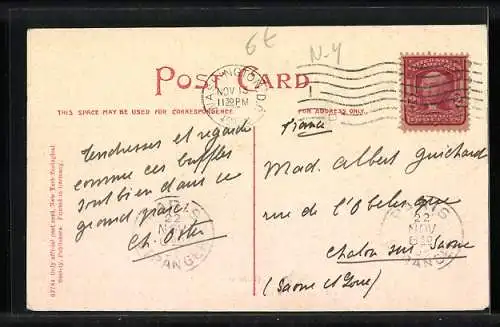 6E
N-Y
POST CARD
WASHINGTON, D.
NOV 1
11 30 PM
THIS SPACE MAY BE USED FOR CORRESPONDENCE.
FOR ADDRESS ONLY.
France
Tendresses et regarde
comme ces buffles
sont bien dans ce
grand parc
Ch. Otter
Mad. Albert Guichard
rue de l'Obelisque
Chalon sur Saone
(Saone et Loire)
PARIS
22
NOV
ETRANGER
PARIS
22
NOV
ETRANGER
Only official post card, New York Zoological
Society, Publishers. Printed in Germany.